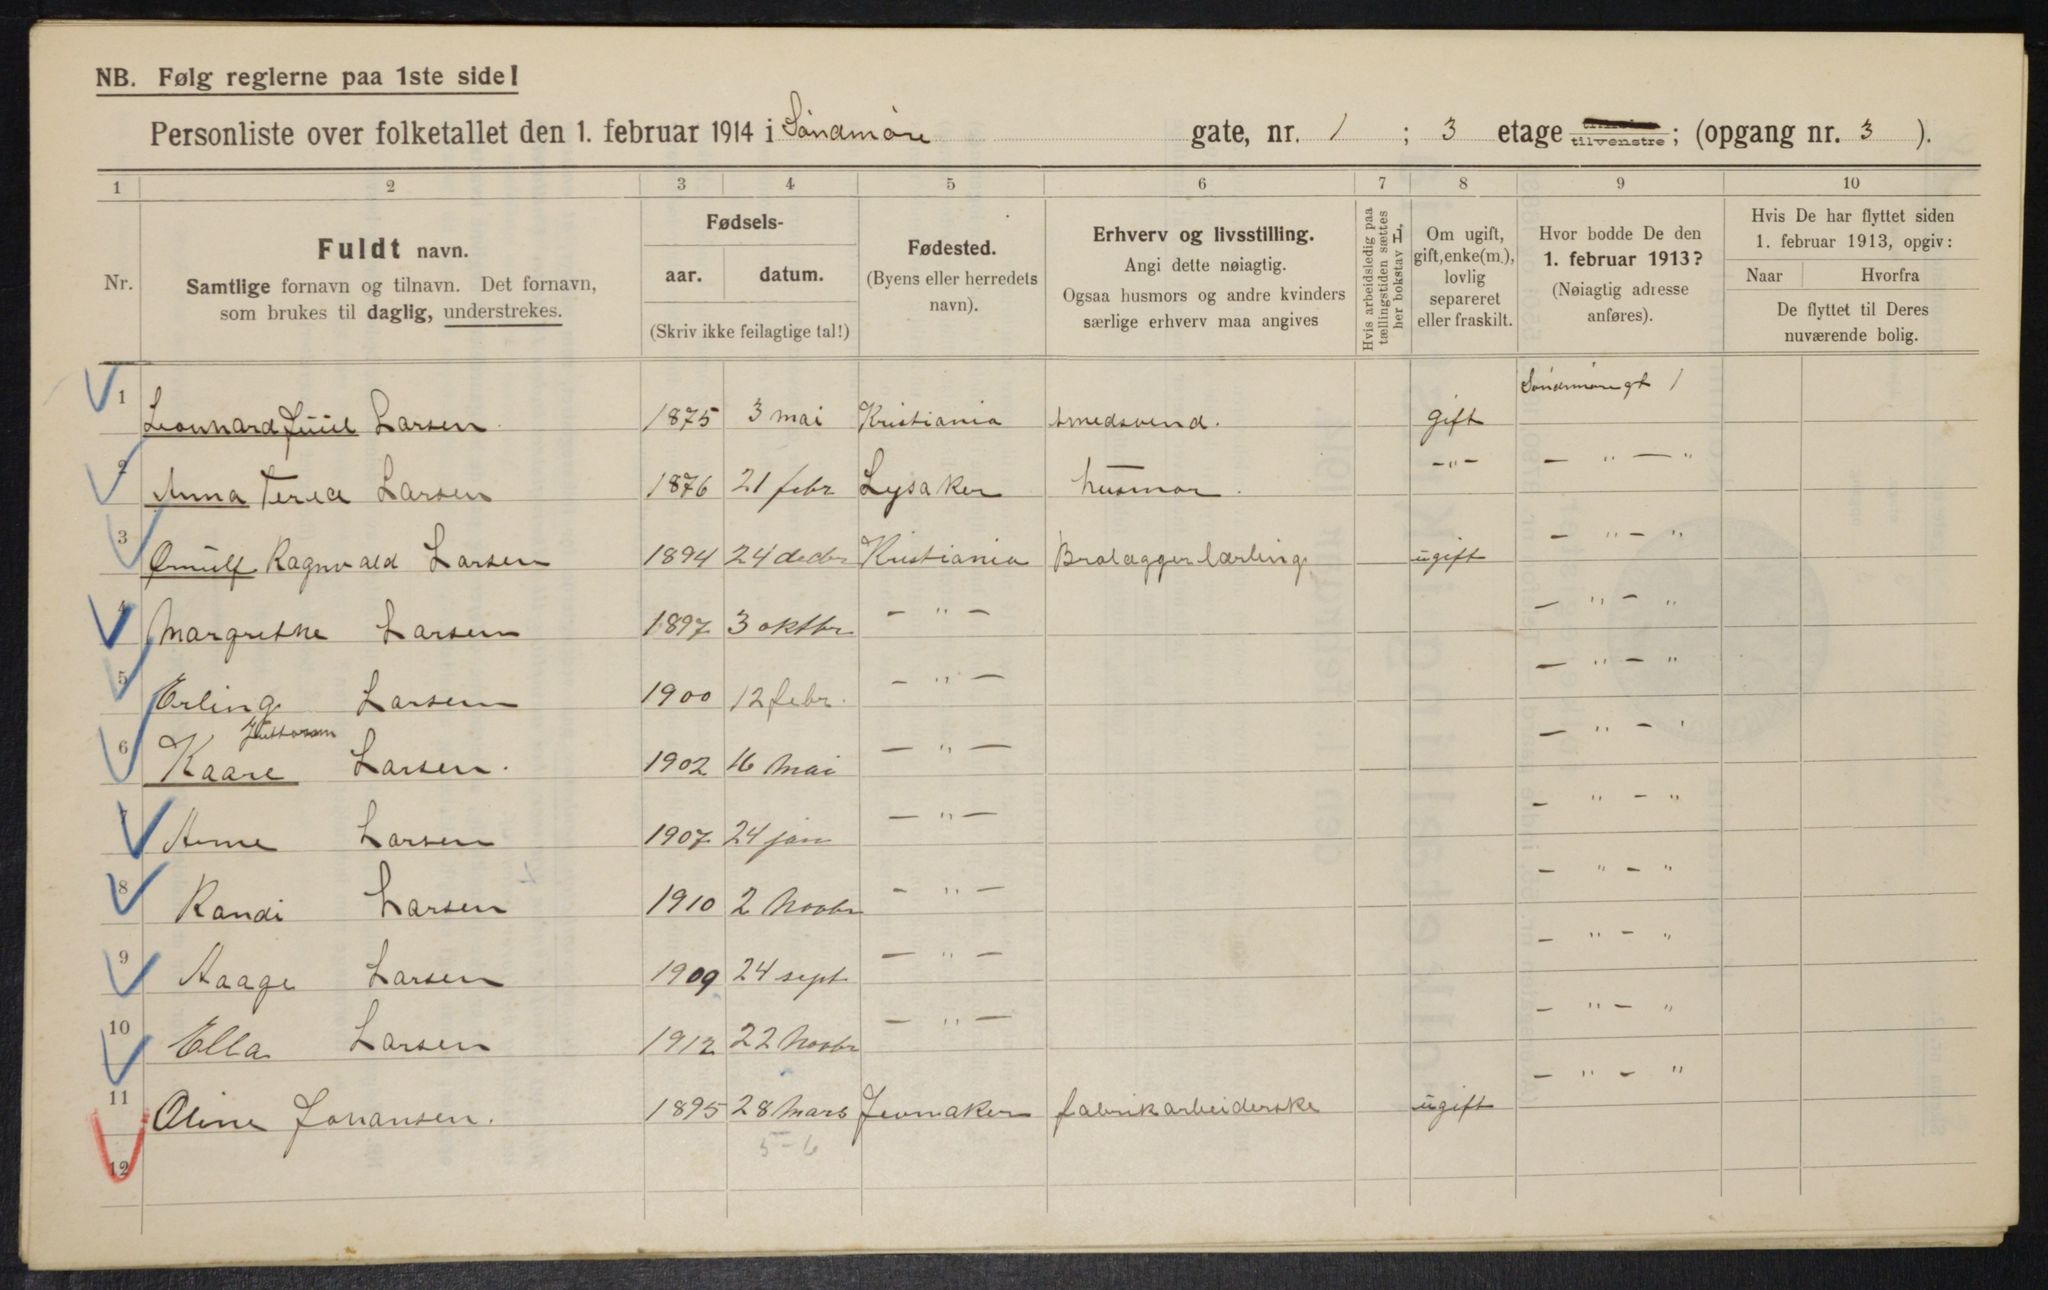 NB. Følg reglerne paa 1ste side!
Personliste over folketallet den 1. februar 1914 i Søndmøre gate, nr. 1 ; 3 etage tilvenstre; (opgang nr. 3 ).
1 2 3 4 5 6 7 8 9 10
Nr.
Fuldt navn.
Samtlige fornavn og tilnavn. Det fornavn,
som brukes til daglig, understrekes.
Fødsels-
aar. datum.
(Skriv ikke feilagtige tal!)
Fødested.
(Byens eller herredets
navn).
Erhverv og livsstilling.
Angi dette nøiagtig.
Ogsaa husmors og andre kvinders
særlige erhverv maa angives
Hvis arbeidsledig paa
tællingstiden sættes
her bokstav L.
Om ugift,
gift, enke(m.),
lovlig
separeret
eller fraskilt.
Hvor bodde De den
1. februar 1913?
(Nøiagtig adresse
anføres).
Hvis De har flyttet siden
1. februar 1913, opgiv:
Naar Hvorfra
De flyttet til Deres
nuværende bolig.
1 Leonnard Juul Larsen 1875 3 mai Kristiania smedsvend. gift Søndmøre gt 1
2 Anna Larsen 1876 21 febr Lysaker husmor. -"- - " - "
3 Ørnulf Ragnvald Larsen 1894 24 decbr Kristiania Brolægger lærling ugift - " - "
4 Margrethe Larsen 1897 3 oktbr - " - - " - "
5 Erling Larsen 1900 12 febr. - " - - " - "
6 Kaare Larsen. 1902 16 Mai - " - - " - "
7 Arne Larsen 1907 24 jan - " - - " - "
8 Randi Larsen 1910 2 Novbr - " - - " - "
9 Aage Larsen 1909 24 sept - " - - " - "
10 Ella Larsen 1912 22 Novbr - " - - " - "
11 Oline Johansen. 1895 28 Mars Jevnaker fabrikarbeiderske ugift - " - "
5-6
12